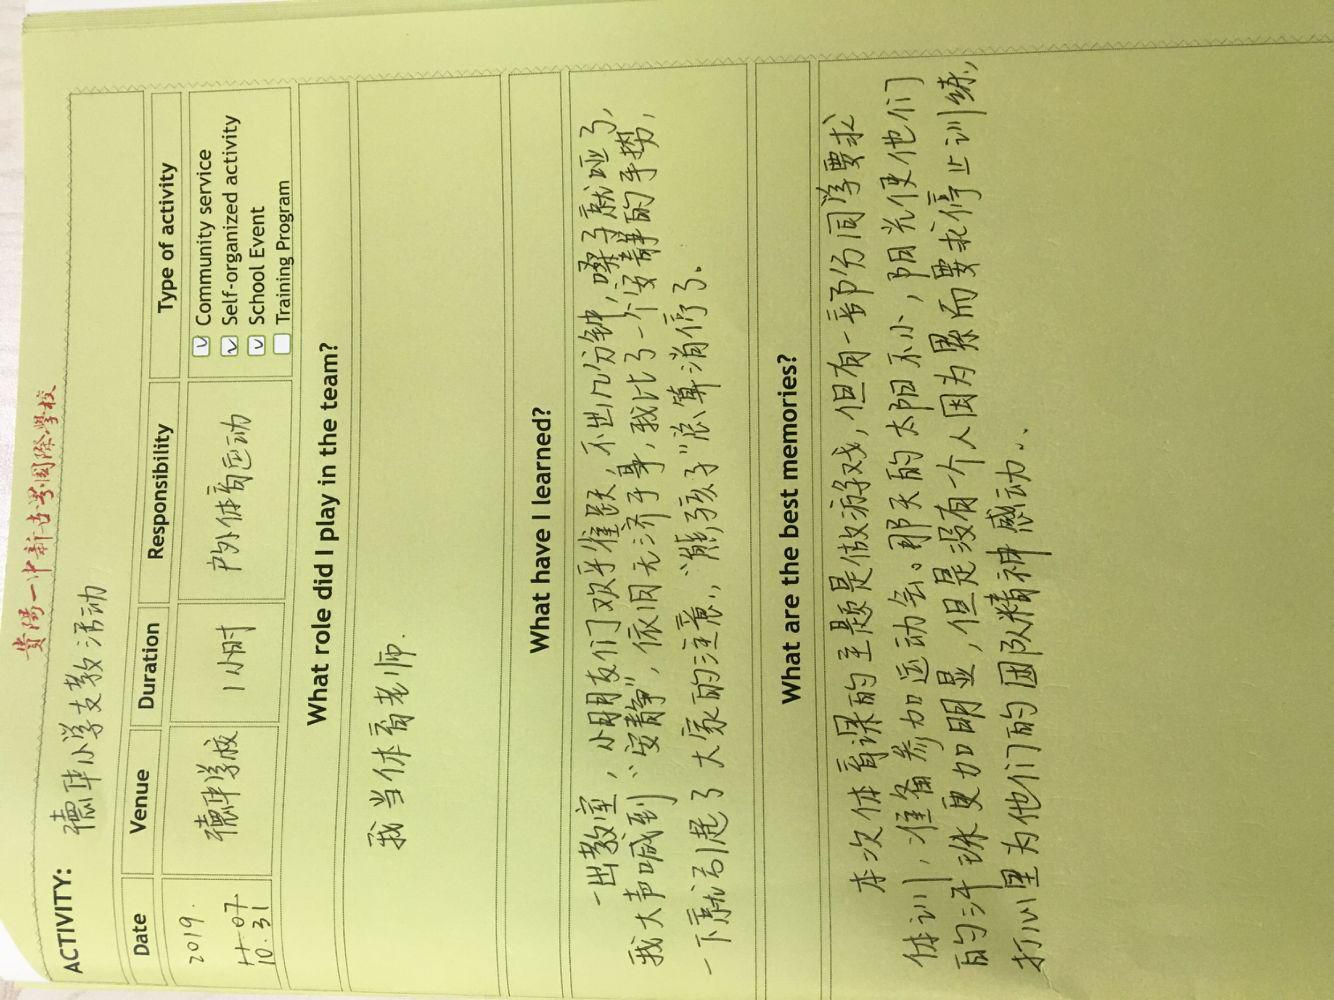 貴陽一中新世界國際學校
ACTIVITY: 德华小学支教活动
Date Venue Duration Responsibility Type of activity
2019. 11.07 10.31
德华学校
1小时
户外体育运动
Community service
Self-organized activity
School Event
Training Program
What role did I play in the team?
我当体育老师.
What have I learned?
一出教室，小朋友们欢呼雀跃，不出几分钟，嗓子就哑了，
我大声喊到“安静”，依旧无济于事，我比了一个安静的手势，
一下就引起了大家的注意，“熊孩子”总算消停了。
What are the best memories?
本次体育课的主题是做游戏，但有一部份同学要求
体训，准备参加运动会。那天的太阳不小，阳光使他们
的汗珠更加明显，但是没有一个人因为累而要求停止训练，
打心里为他们的团队精神感动..